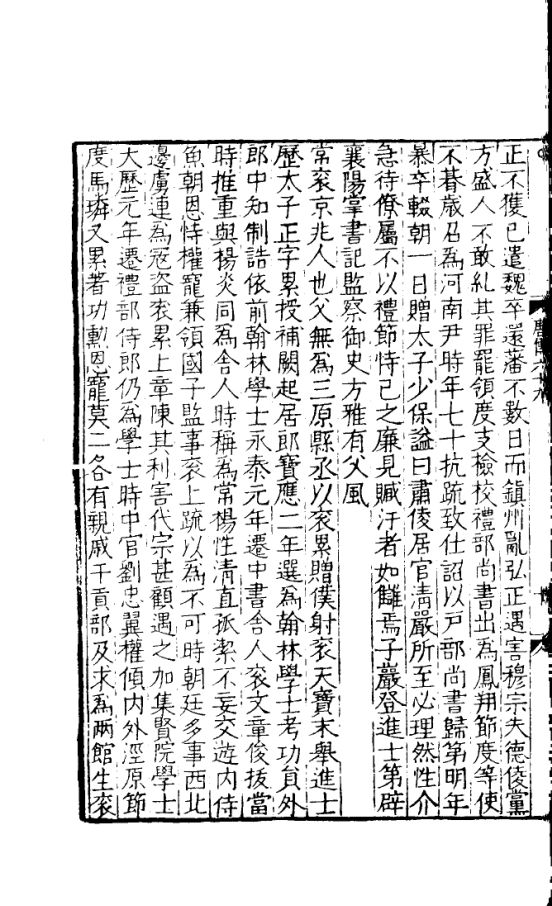 正不獲已遣魏卒還藩不數日而鎮州亂弘正遇害穆宗失德倰黨
方盛人不敢糺其罪罷領度支檢校禮部尚書出為鳳翔節度等使
不朞歳召為河南尹時年七十抗疏致仕詔以戸部尚書歸第明年
暴卒輟朝一日贈太子少保謚曰肅倰居官清嚴所至必理然性介
急待僚屬不以禮節恃己之廉見贓汙者如讎焉子巖登進士第辟
襄陽掌書記監察御史方雅有父風
常衮京兆人也父無為三原縣丞以衮累贈僕射衮天寶末舉進士
歷太子正字累授補闕起居郎寶應二年選為翰林學士考功貟外
郎中知制誥依前翰林學士永泰元年遷中書舎人衮文章俊拔當
時推重與楊炎同為舎人時稱為常楊性清直孤潔不妄交遊内侍
魚朝恩恃權寵兼領國子監事衮上疏以為不可時朝廷多事西北
邊虜連為宼盗衮累上章陳其利害代宗甚顧遇之加集賢院學士
大歷元年遷禮部侍郎仍為學士時中官劉忠翼權傾内外涇原節
度馬璘又累著功勲恩寵莫二各有親戚干貢部及求為兩館生衮